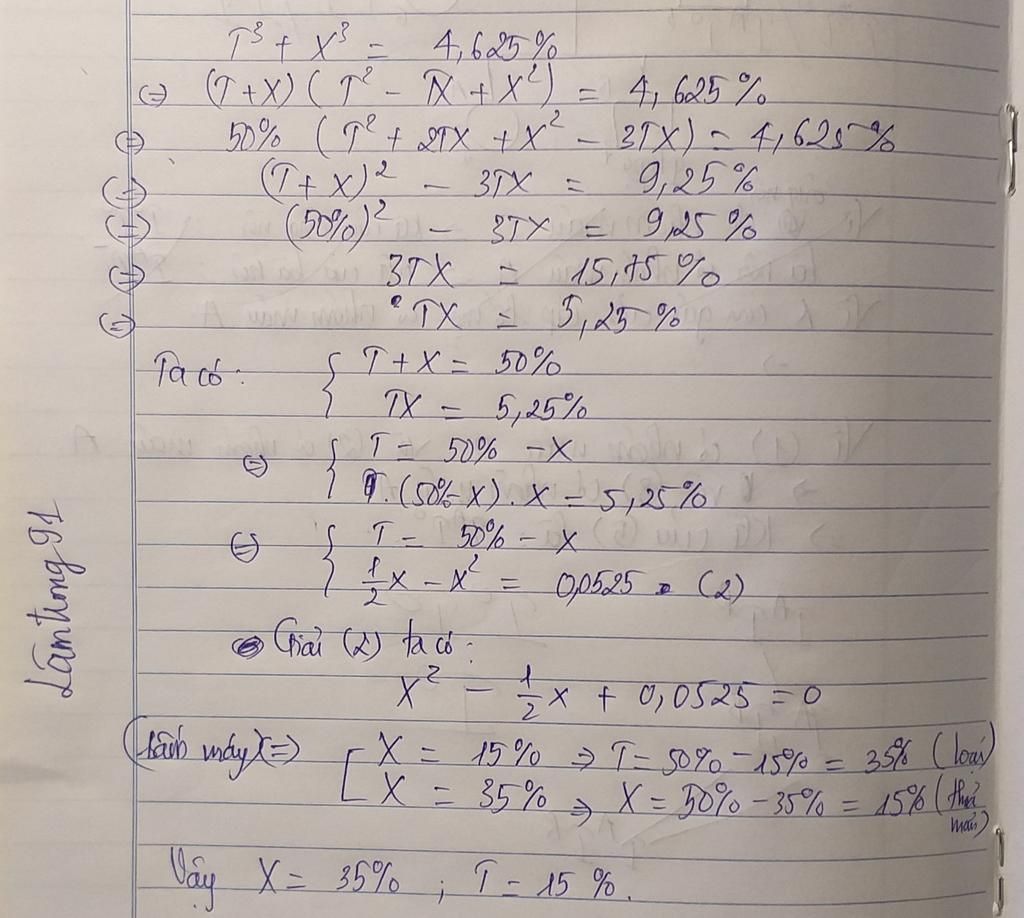 T³ + X³ = 4,625%
(=) (T+X) ( T² - TX + X²) = 4,625%
(=) 50% ( T² + 2TX + X² - 3TX) = 4,625%
(=) (T + X)² - 3TX = 9,25%
(=) (50%)² - 3TX = 9,25%
(=) 3TX = 15,75%
(=) TX = 5,25%
Ta có: { T + X = 50%
TX = 5,25%
(=) { T = 50% - X
(50%-X).X = 5,25%
(=) { T = 50% - X
1/2 X - X² = 0,0525 (2)
Giải (2) ta có:
X² - 1/2 X + 0,0525 = 0
(bấm máy) (=) [ X = 15% => T = 50% - 15% = 35% (loại)
X = 35% => X = 50% - 35% = 15% (thỏa mãn)
Vậy X = 35% ; T = 15%.
Lâmtruong91